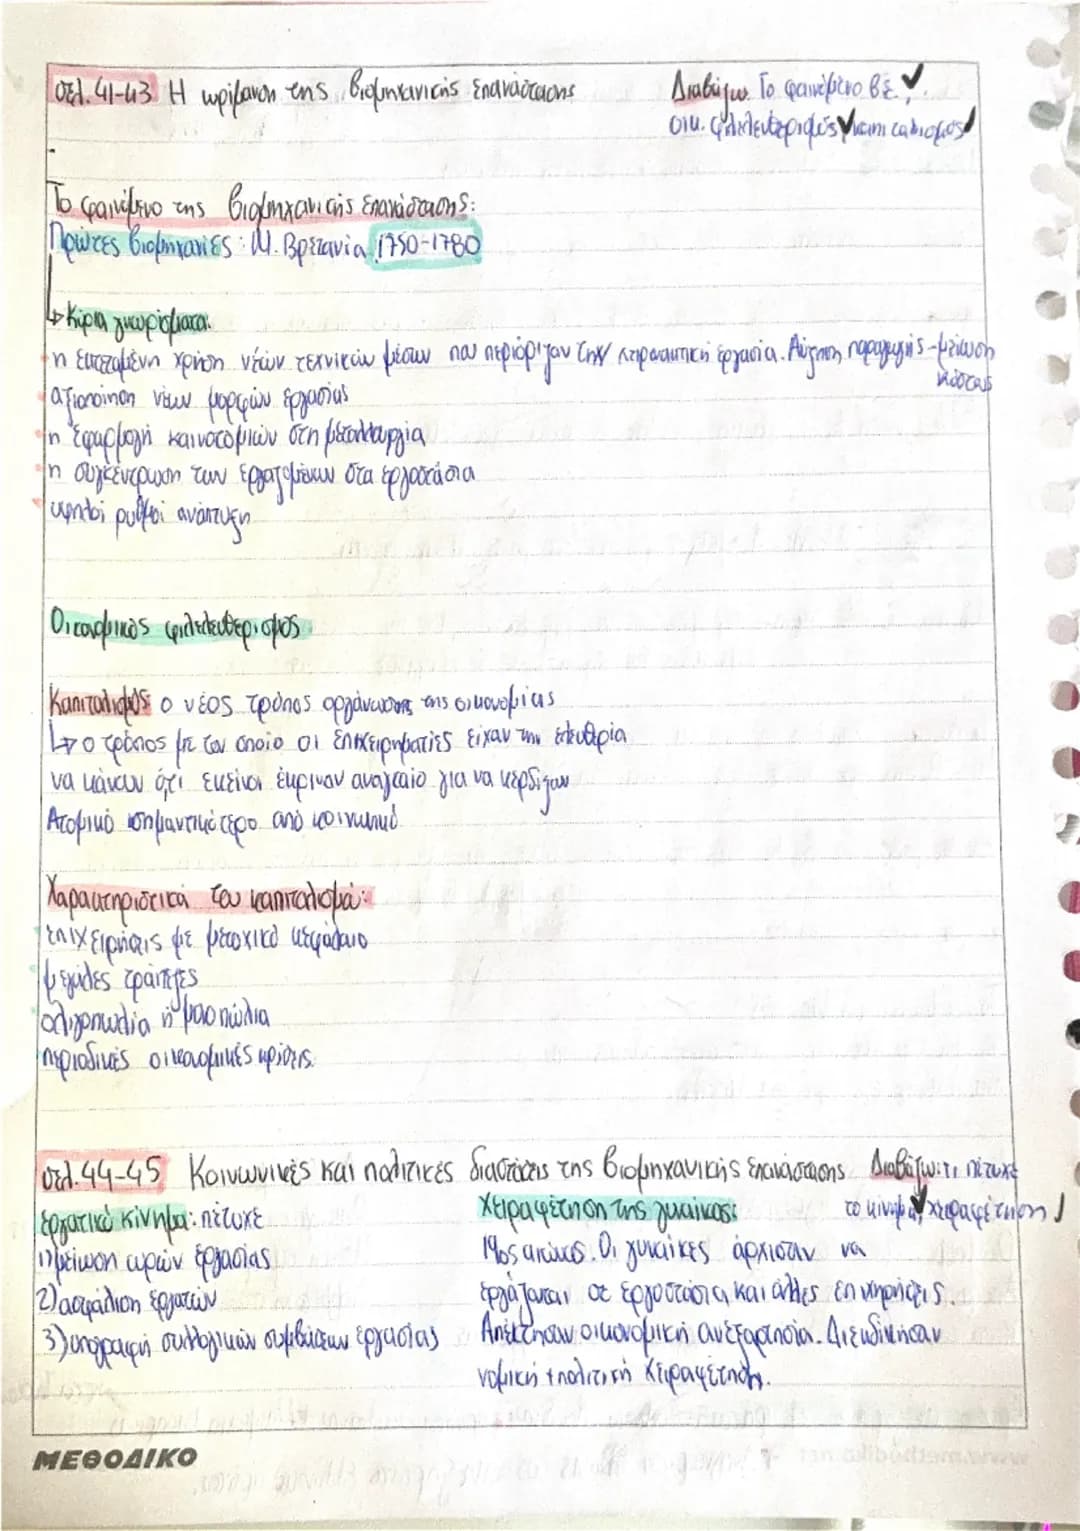 σελ. 41-43 Η ωρίμανση της βιομηχανικής επανάστασης
Διαβάζω: Το φαινόμενο β.ε. ✓,
οικ. φιλελευθερισμός ✓ καπιταλισμός ✓
Το φαινόμενο της βιομηχανικής επανάστασης:
Πρώτες βιομηχανίες: Μ. Βρετανία 1750-1780
↳ Κύρια γνωρίσματα:
η εκτεταμένη χρήση νέων τεχνικών μέσων που περιόριζαν την χειρωνακτική εργασία. Αύξηση παραγωγής - μείωση
κόστους
αξιοποίηση νέων μορφών εργασίας
η εφαρμογή καινοτομιών στη μεταλλουργία
η συγκέντρωση των εργαζομένων στα εργοστάσια
υψηλοί ρυθμοί ανάπτυξη
Οικονομικός φιλελευθερισμός
Καπιταλισμός: ο νέος τρόπος οργάνωσης της οικονομίας
↳ ο τρόπος με τον οποίο οι επιχειρηματίες είχαν την ελευθερία
να κάνουν ότι εκείνοι έκριναν αναγκαίο για να κερδίζουν
Ατομικό σημαντικότερο από κοινωνικό
Χαρακτηριστικά του καπιταλισμά:
επιχειρήσεις με μετοχικό κεφάλαιο
μεγάλες τράπεζες
ολιγοπώλια ή μονοπώλια
περιοδικές οικονομικές κρίσεις.
σελ. 44-45 Κοινωνικές και πολιτικές διαστάσεις της βιομηχανικής επανάστασης
Διαβάζω: τι πέτυχε
το κίνημα ✓, χειραφέτηση ✓
Εργατικό κίνημα: πέτυχε
1) μείωση ωρών εργασίας
2) ασφάλιση εργατών
3) υπογραφή συλλογικών συμβάσεων εργασίας
Χειραφέτηση της γυναίκας:
19ος αιώνας. Οι γυναίκες άρχισαν να
εργάζονται σε εργοστάσια και άλλες επιχειρήσεις.
Απέκτησαν οικονομική ανεξαρτησία. Διεκδίκησαν
νομική + πολιτική χειραφέτηση.
ΜΕΘΟΔΙΚΟ